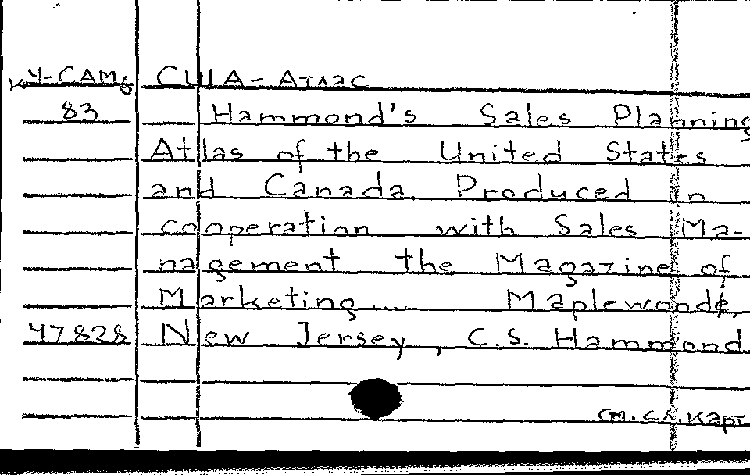 У-САМ США - Атлас
83 Hammond's Sales Planning
Atlas of the United States
and Canada. Produced in
cooperation with Sales Ma-
nagement the Magazine of
Marketing... Maplewoode,
47828 New Jersey, C.S. Hammond
см. сл. карт